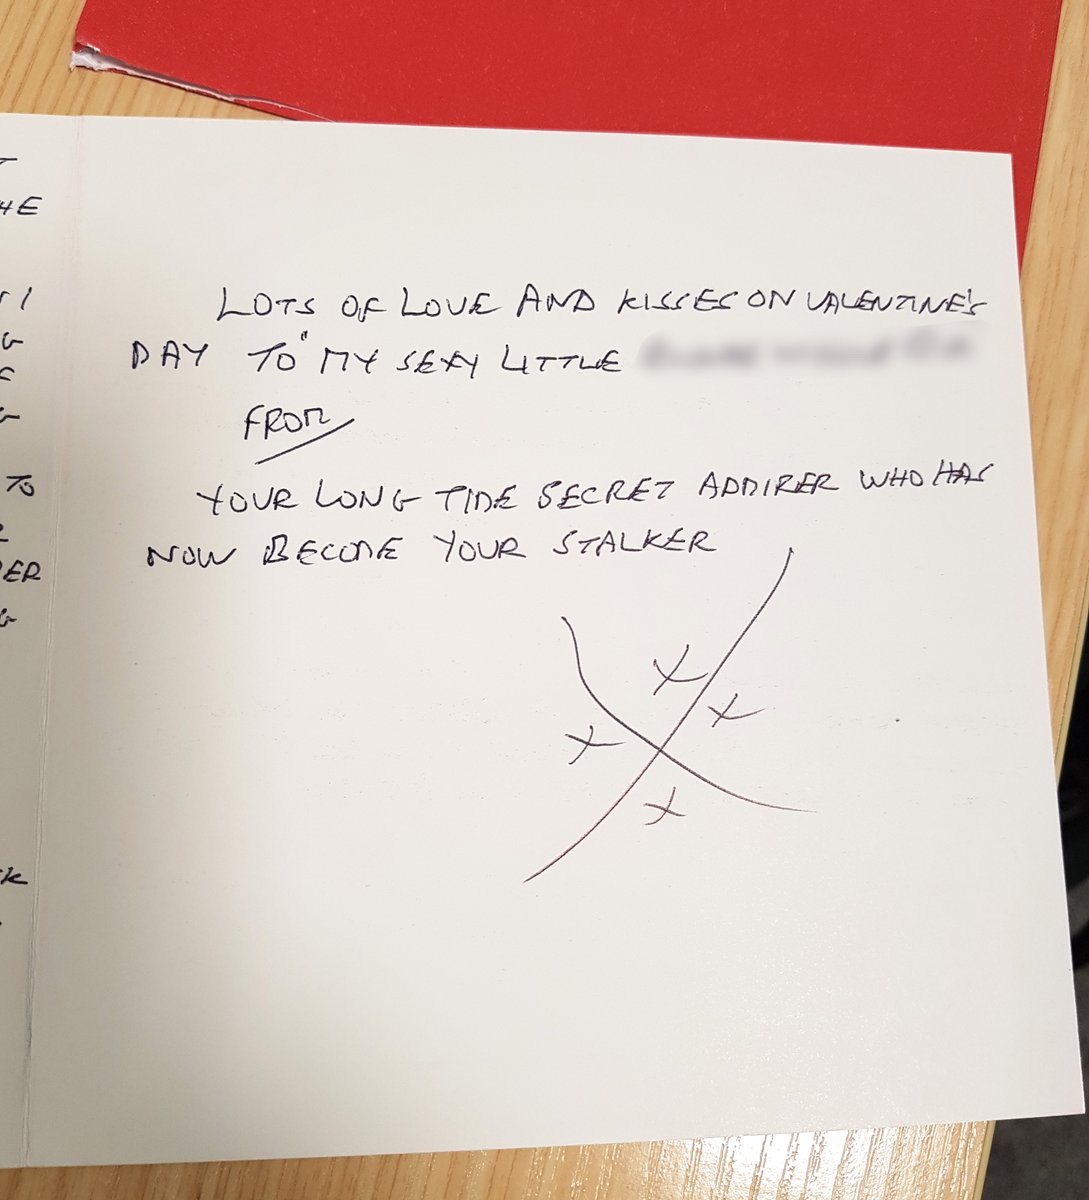 TO
LOTS OF LOVE AND KISSES ON VALENTINE'S
DAY TO "MY SEXY LITTLE
FROM
YOUR LONG TIME SECRET ADMIRER WHO HAS
NOW BECOME YOUR STALKER
X
X
X
X
X